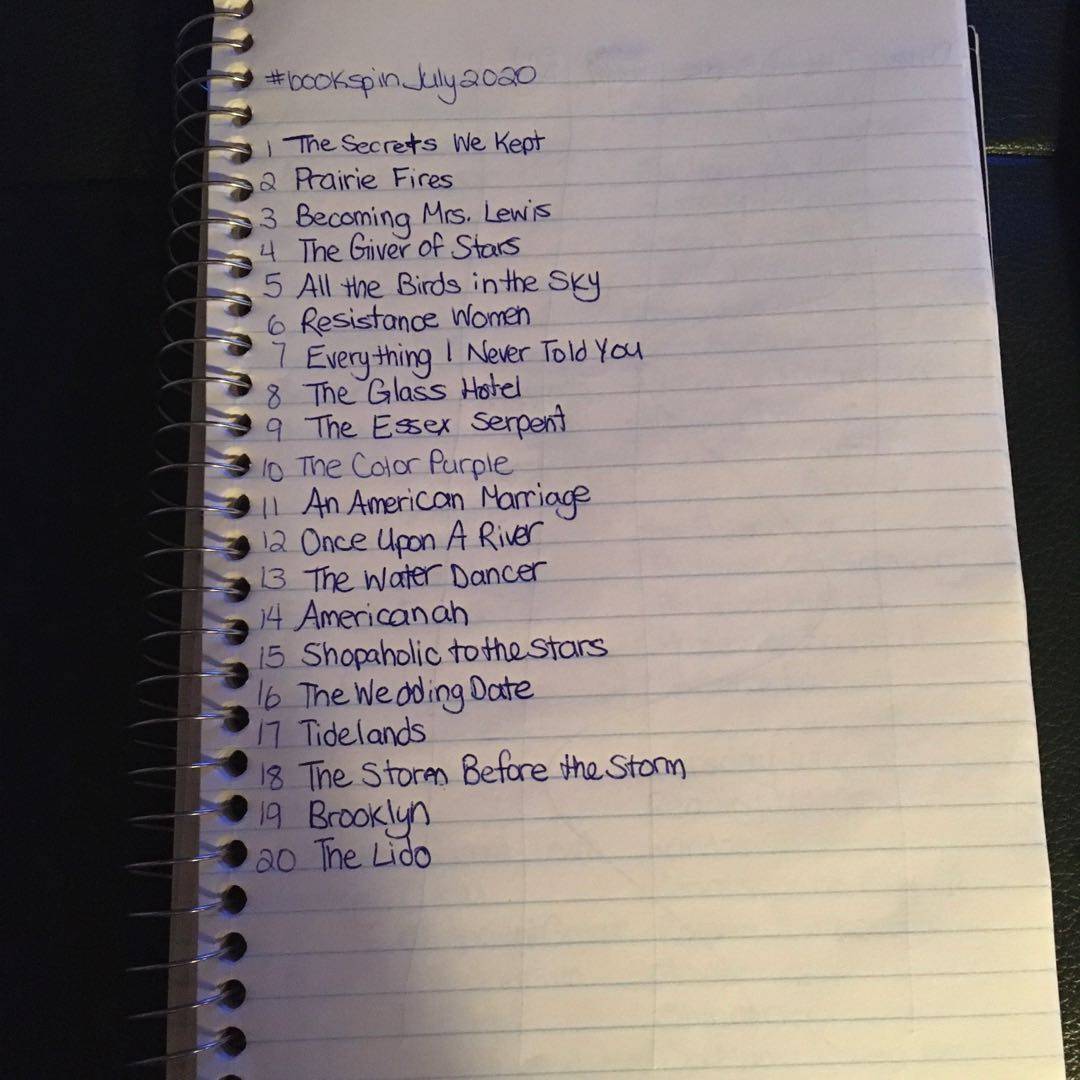 #bookspinJuly2020
1 The Secrets We Kept
2 Prairie Fires
3 Becoming Mrs. Lewis
4 The Giver of Stars
5 All the Birds in the Sky
6 Resistance Women
7 Everything I Never Told You
8 The Glass Hotel
9 The Essex Serpent
10 The Color Purple
11 An American Marriage
12 Once Upon A River
13 The Water Dancer
14 Americanah
15 Shopaholic to the Stars
16 The Wedding Date
17 Tidelands
18 The Storm Before the Storm
19 Brooklyn
20 The Lido